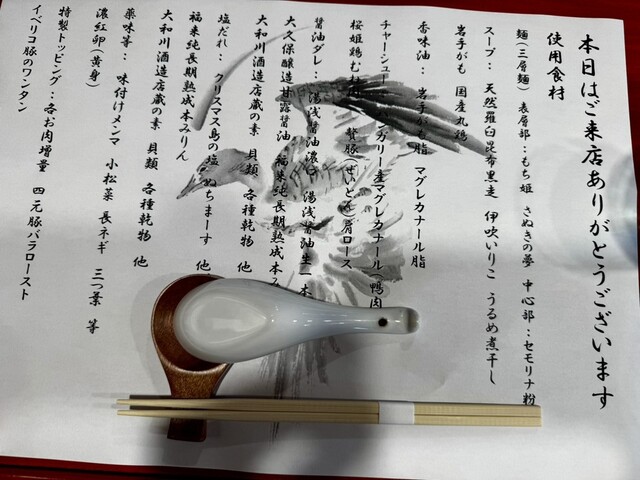 本日はご来店ありがとうございます
使用食材
麺(三層麺) 表層部:もち姫 さぬきの夢 中心部:セモリナ粉
スープ: 天然羅臼昆布黒走 伊吹いりこ うるめ煮干し
岩手がも 国産丸鶏
香味油: 岩手がも脂 マグレカナール脂
チャーシュー ハンガリー産マグレカナール(鴨肉
桜姫鶏むね 贅豚(ぜいとん)肩ロース
醤油ダレ: 湯浅醤油濃口 湯浅醤油生一本
大久保醸造甘露醤油 福来純長期熟成本み
大和川酒造店蔵の素 貝類 各種乾物 他
塩だれ: クリスマス島の塩 ぬちまーす 他
福来純長期熟成本みりん
大和川酒造店蔵の素 貝類 各種乾物 他
薬味等: 味付けメンマ 小松菜 長ネギ 三つ葉 等
濃紅卵(黄身)
特製トッピング:各お肉増量 四元豚バラロースト
イベリコ豚のワンタン